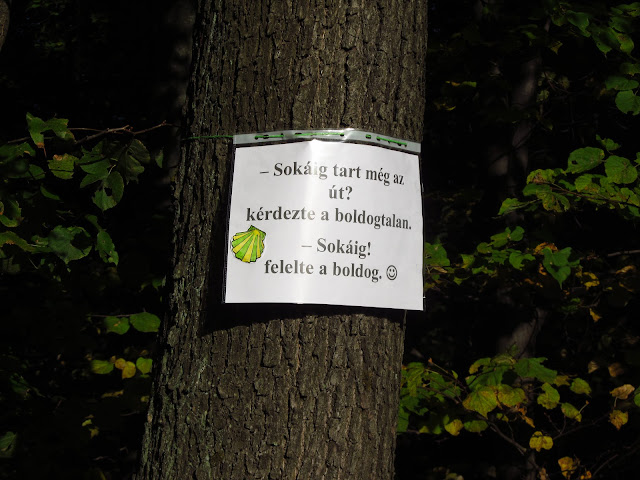 – Sokáig tart még az
út?
kérdezte a boldogtalan.
– Sokáig!
felelte a boldog. ☺